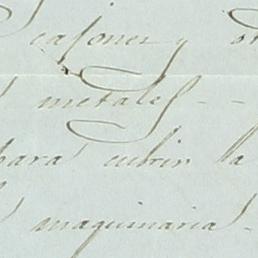 cajones y
metales - -
para cubrir la
maquinaria -